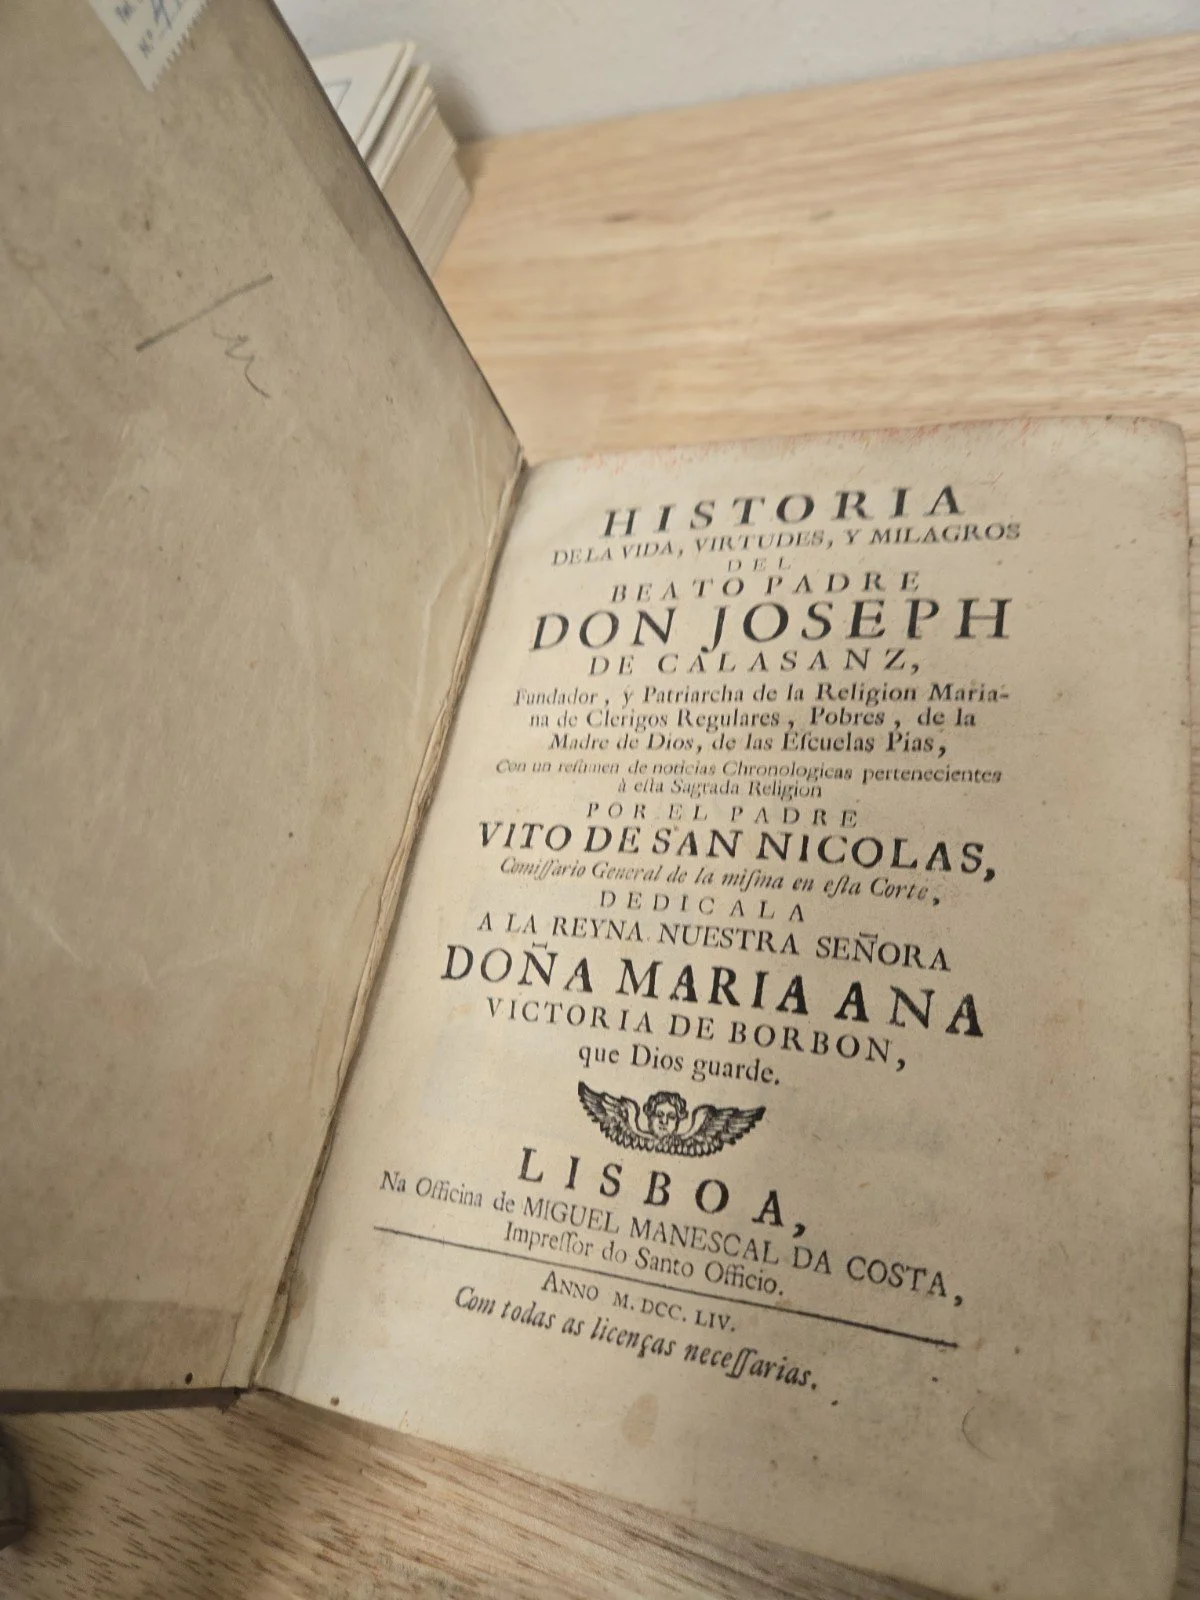 Nº
HISTORIA
DE LA VIDA, VIRTUDES, Y MILAGROS
DEL
BEATO PADRE
DON JOSEPH
DE CALASANZ,
Fundador, y Patriarcha de la Religion Maria-
na de Clerigos Regulares, Pobres, de la
Madre de Dios, de las Eſcuelas Pias,
Con un reſumen de noticias Chronologicas pertenecientes
à eſta Sagrada Religion
POR EL PADRE
VITO DE SAN NICOLAS,
Comiſſario General de la miſma en eſta Corte,
DEDICALA
A LA REYNA NUESTRA SEÑORA
DOÑA MARIA ANA
VICTORIA DE BORBON,
que Dios guarde.
LISBOA,
Na Officina de MIGUEL MANESCAL DA COSTA,
Impreſſor do Santo Officio.
ANNO M. DCC. LIV.
Com todas as licenças neceſſarias.